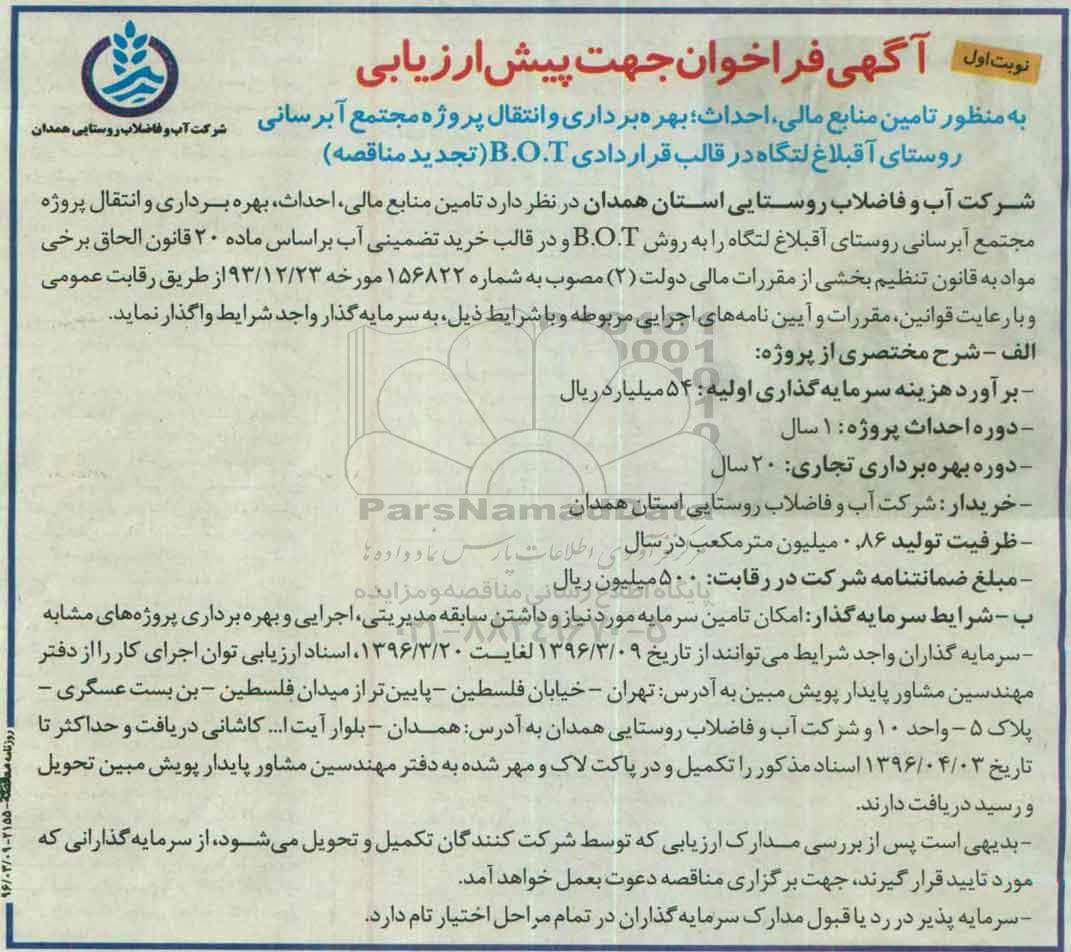 نوبت اول
آگهی فراخوان جهت پیش ارزیابی
به منظور تامین منابع مالی، احداث؛ بهره برداری و انتقال پروژه مجتمع آبرسانی
روستای آقبلاغ لتگاه در قالب قراردادی B.O.T (تجدید مناقصه)
شرکت آب و فاضلاب روستایی همدان
شرکت آب و فاضلاب روستایی استان همدان در نظر دارد تامین منابع مالی، احداث، بهره برداری و انتقال پروژه
مجتمع آبرسانی روستای آقبلاغ لتگاه را به روش B.O.T و در قالب خرید تضمینی آب براساس ماده ۲۰ قانون الحاق برخی
مواد به قانون تنظیم بخشی از مقررات مالی دولت (۲) مصوب به شماره ۱۵۶۸۲۲ مورخه ۹۳/۱۲/۲۳ از طریق رقابت عمومی
و با رعایت قوانین، مقررات و آیین نامه‌های اجرایی مربوطه و با شرایط ذیل، به سرمایه گذار واجد شرایط واگذار نماید.
الف - شرح مختصری از پروژه:
- برآورد هزینه سرمایه گذاری اولیه: ۵۴ میلیارد ریال
- دوره احداث پروژه: ۱ سال
- دوره بهره برداری تجاری: ۲۰ سال
- خریدار: شرکت آب و فاضلاب روستایی استان همدان
ParsNamadData
- ظرفیت تولید ۰,۸۶ میلیون متر مکعب در سال
مرکز آوای اطلاعات پارس نماد داده ها
- مبلغ ضمانتنامه شرکت در رقابت: ۵۰۰ میلیون ریال
پایگاه اطلاع رسانی مناقصه و مزایده
ب - شرایط سرمایه گذار: امکان تامین سرمایه مورد نیاز و داشتن سابقه مدیریتی، اجرایی و بهره برداری پروژه‌های مشابه
۰۲۱-۸۸۳۴۹۶۷۰-۵
- سرمایه گذاران واجد شرایط می توانند از تاریخ ۱۳۹۶/۳/۰۹ لغایت ۱۳۹۶/۳/۲۰، اسناد ارزیابی توان اجرای کار را از دفتر
مهندسین مشاور پایدار پویش مبین به آدرس: تهران - خیابان فلسطین - پایین تر از میدان فلسطین - بن بست عسگری -
پلاک ۵ - واحد ۱۰ و شرکت آب و فاضلاب روستایی همدان به آدرس: همدان - بلوار آیت ا... کاشانی دریافت و حداکثر تا
تاریخ ۱۳۹۶/۰۴/۰۳ اسناد مذکور را تکمیل و در پاکت لاک و مهر شده به دفتر مهندسین مشاور پایدار پویش مبین تحویل
و رسید دریافت دارند.
- بدیهی است پس از بررسی مدارک ارزیابی که توسط شرکت کنندگان تکمیل و تحویل می‌شود، از سرمایه گذارانی که
مورد تایید قرار گیرند، جهت برگزاری مناقصه دعوت بعمل خواهد آمد.
- سرمایه پذیر در رد یا قبول مدارک سرمایه گذاران در تمام مراحل اختیار تام دارد.
روزنامه ۹۶/۰۳/۰۹-۲۱۵۵